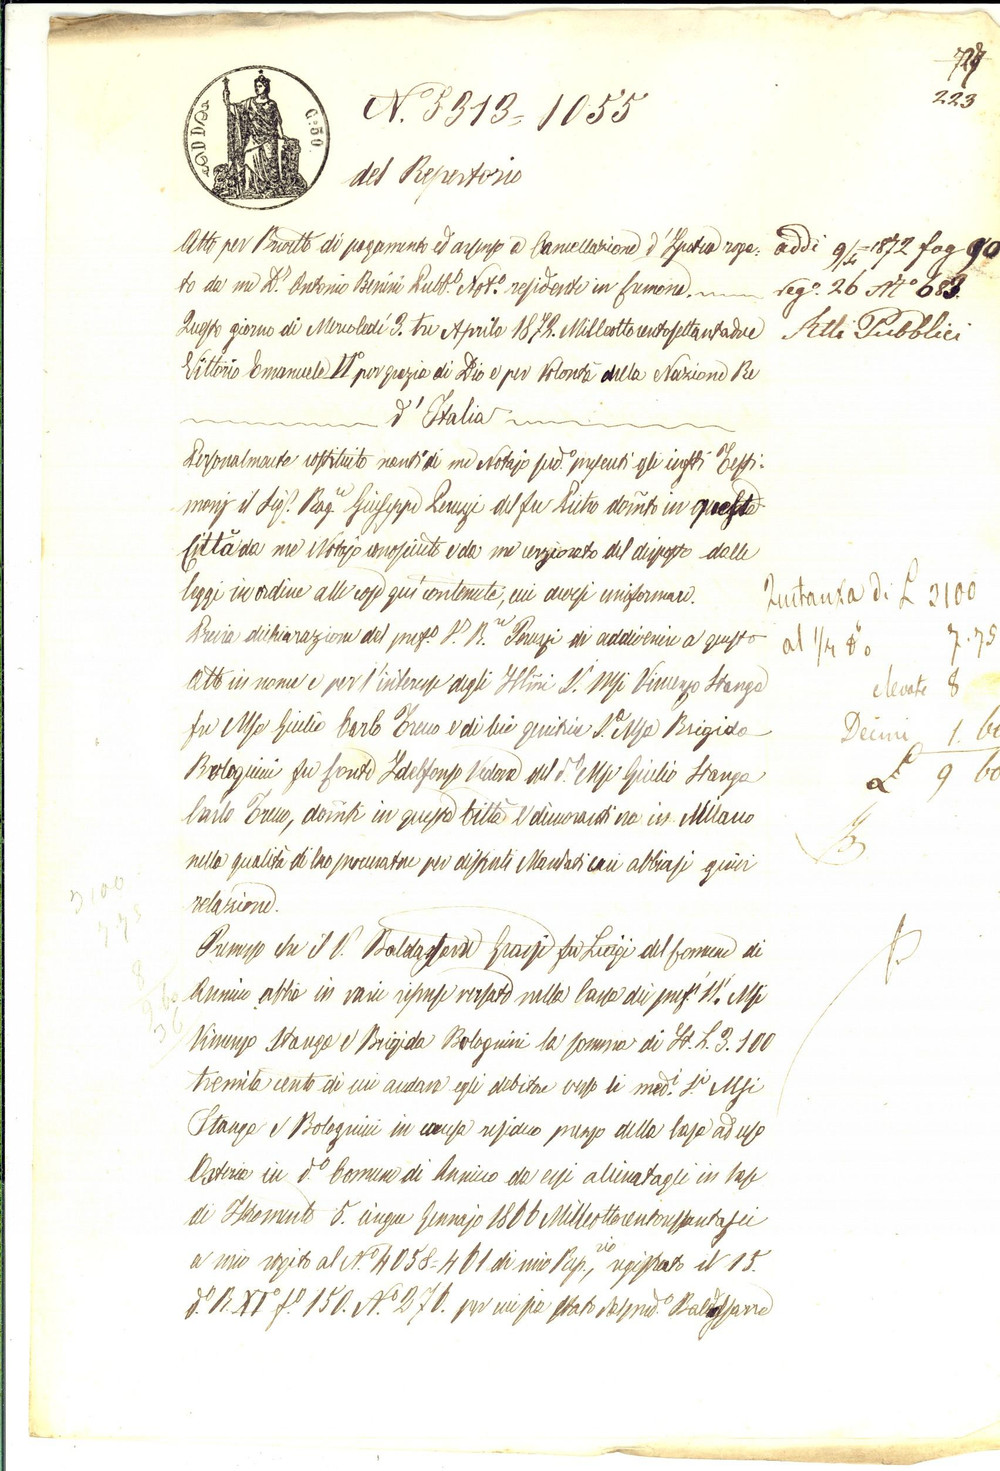 727
223
N.° 3313=1055
del Repertorio
C:50
Atto per Brevetto di pagamento ed assenso a Cancellazione d'Ipoteca roga-
to da me D.r Antonio Benini Pubb.o Not.o residente in Cremona.
Questo giorno di Mercoledì 3. tre Aprile 1872. Milleottocentosettantadue
Vittorio Emanuele II° per grazia di Dio e per Volontà della Nazione Re
d'Italia
addi 9/4 1872 fog 90
reg.o 26 N.o 683.
Atti Pubblici
Personalmente costituito nanti di me Notajo pred.o presenti gli infti Testi-
monj il Sig.r Rag.re Giuseppe Peruzzi del fu Pietro domto in questa
Città da me Notajo conosciuto e da me cerziorato del disposto dalle
leggi in ordine alle cose qui contenute, cui devesi uniformare.
Previa dichiarazione del pref.o S.r R.re Peruzzi di addivenire a questo
Atto in nome e per l'interesse degli Illmi S.ri Msi Vincenzo Stanga
fu Mse Giulio Carlo Treco e di lui genitrice S.ra Msa Brigida
Bolognini fu Conte Idelfonso Vedova del d.o Mse Giulio Stanga
Carlo Treco, domti in questa Città e dimoranti ora in Milano
nella qualità di loro procuratore per distinti Mandati cui abbiasi quivi
relazione.
Quitanza di L 3100
al 1/4 % 7.75
elevate 8
Decimi 1. 60
L 9 60
3100
7.75
8
9 60
Premesso che il S.r Baldassarre Grassi fu Luigi del Comune di
Annico abbia in varie riprese versato nella Cassa dei pref.i S.ri Msi
Vincenzo Stanga e Brigida Bolognini la somma di It. L. 3.100
tremila cento di cui andava egli debitore verso li med.i S.ri Msi
Stanga e Bolognini in causa residuo prezzo della Casa ad uso
Osteria in d.o Comune di Annico da essi alienatagli in base
di Istromento 5. cinque Gennajo 1866 Milleottocentosessantasei
a mio rogito al N.o 4058=461 di mio Rep.rio, registrato il 15.
d.o R. XI° f.o 150. N.o 276. per cui sia stato dal pred.o Baldassarre